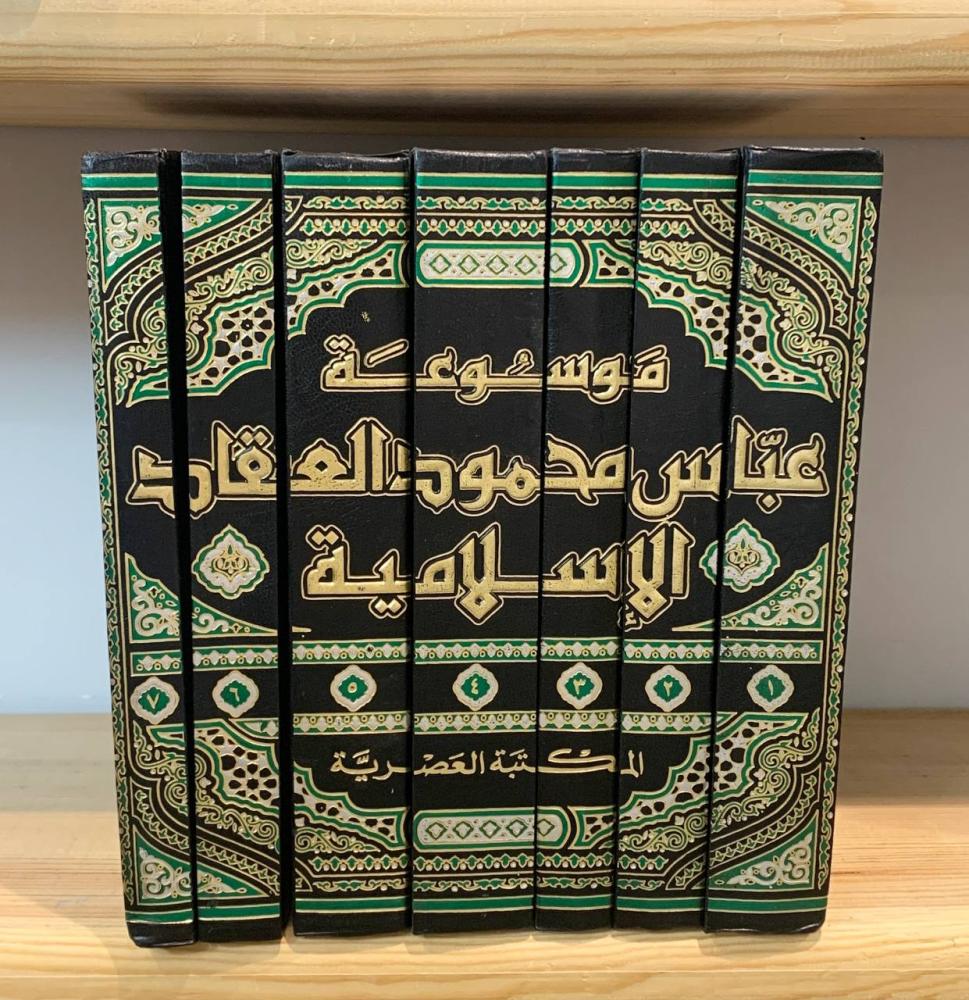 مَوسُوعَة
عبّاس محمود العقاد
الإسلامية
١ ٢ ٣ ٤ ٥ ٦ ٧
المكتبَة العَصْريَّة